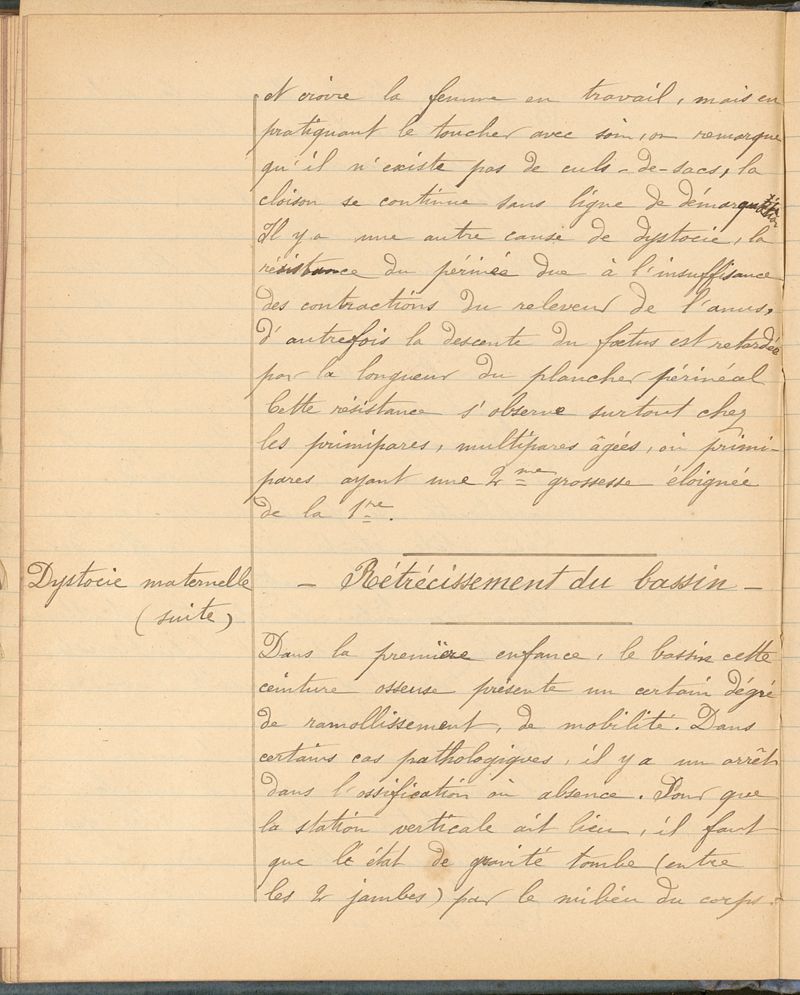 et croire la femme en travail, mais en
pratiquant le toucher avec soin, on remarque
qu'il n'existe pas de culs-de-sacs, la
cloison se continue sans ligne de démarquation
Il y a une autre cause de dystocie, la
résistance du périnée due à l'insuffisance
des contractions du releveur de l'anus,
d'autrefois la descente du fœtus est retardée
par la longueur du plancher périnéal
Cette résistance s'observe surtout chez
les primipares, multipares âgées, où primi-
pares ayant une 2me grossesse éloignée
de la 1re.
Dystocie maternelle
(suite)
- Rétrécissement du bassin -
Dans la première enfance, le bassin cette
ceinture osseuse présente un certain dégré
de ramollissement, de mobilité. Dans
certains cas pathologiques, il y a un arrêt
dans l'ossification où absence. Pour que
la station verticale ait lieu, il faut
que le état de gravité tombe (entre
les 2 jambes) par le milieu du corps.